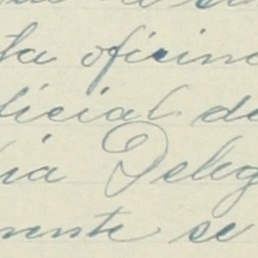 ta oficin
dicial de
ia Deleg
mente se